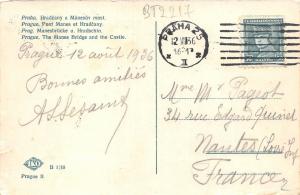 BT2917
Praha. Hradčany a Mánesův most.
Prague. Pont Manes et Hradčany.
Prag. Manesbrücke u. Hradschin.
Prague. The Manes Bridge and the Castle.
Prague 12 août 1936
Bonnes amitiés
PRAHA 25
12 VIII 36
II
Mme M. Pageot
34 rue Edgard Quinet
Nantes (Loire Inf
France
Prague II